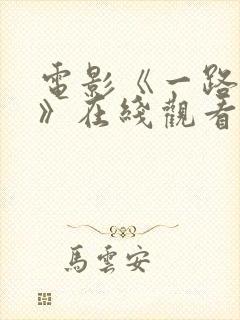 電影《一路
》在綫觀看
馬雲安